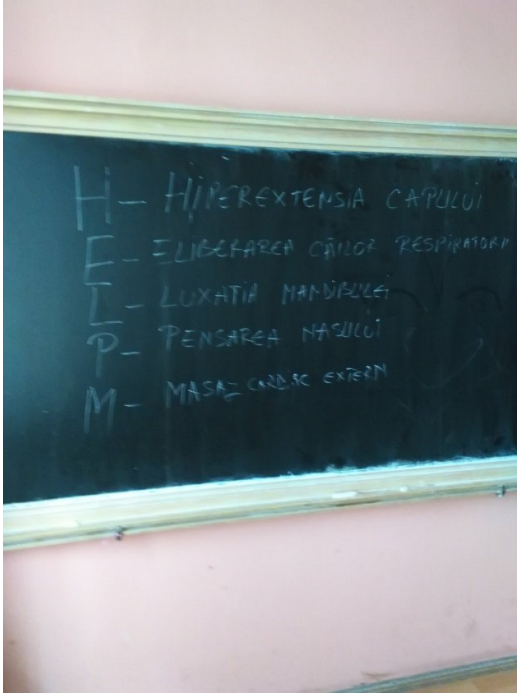 H - HIPEREXTENSIA CAPULUI
E - ELIBERAREA CĂILOR RESPIRATORII
L - LUXAȚIA MANDIBULEI
P - PENSAREA NASULUI
M - MASAJ CARDIAC EXTERN